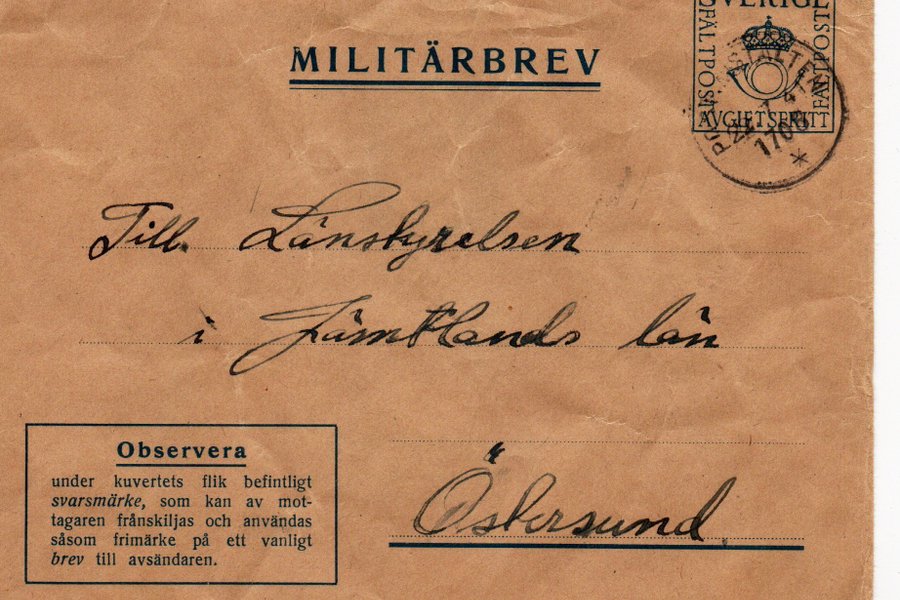 MILITÄRBREV
SVERIGE
FÄLTPOST
FÄLTPOST
AVGIFTSFRITT
1708
*
Till Länstyrelsen
i Jämtlands län
Östersund
Observera
under kuvertets flik befintligt
svarsmärke, som kan av mot-
tagaren frånskiljas och användas
såsom frimärke på ett vanligt
brev till avsändaren.